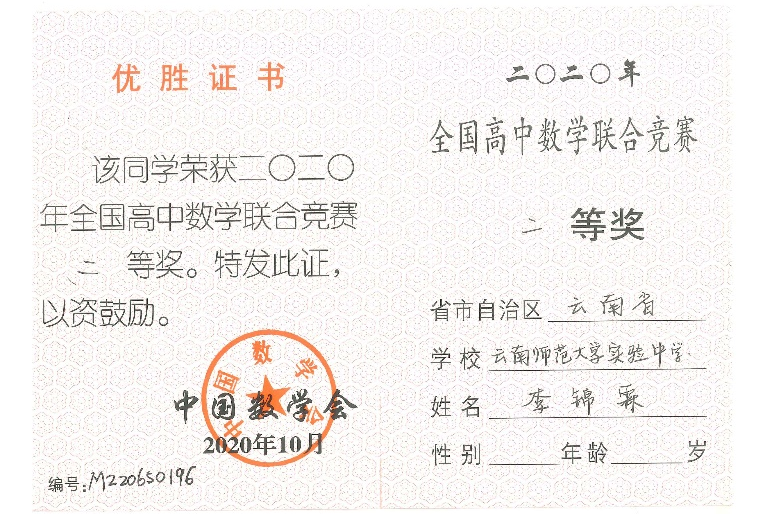 优胜证书
该同学荣获二〇二〇
年全国高中数学联合竞赛
二 等奖。特发此证，
以资鼓励。
中国数学会
中国数学会
2020年10月
编号:M2206S0196
二〇二〇年
全国高中数学联合竞赛
二 等奖
省市自治区 云南省
学校 云南师范大学实验中学
姓名 李锦霖
性别 年龄 岁